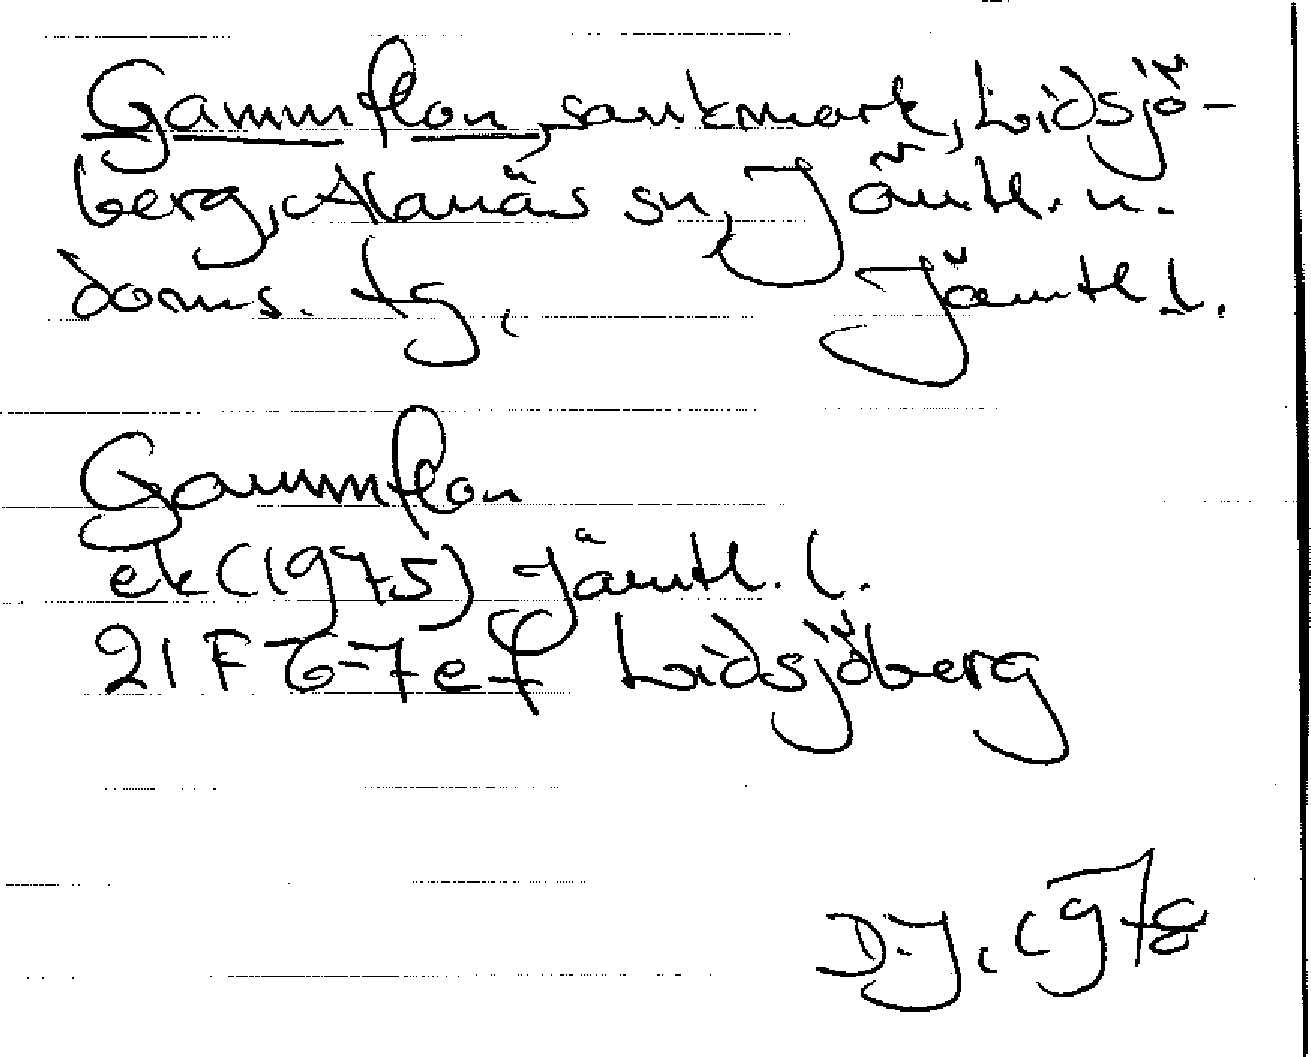 Gammflon, sankmark, Lidsjö-
berg, Alanäs sn, Jämtl. n.
doms. tg, Jämtl l.
Gammflon
ek (1975) Jämtl. l.
21 F 6-7 e-f Lidsjöberg
D.J. 1978